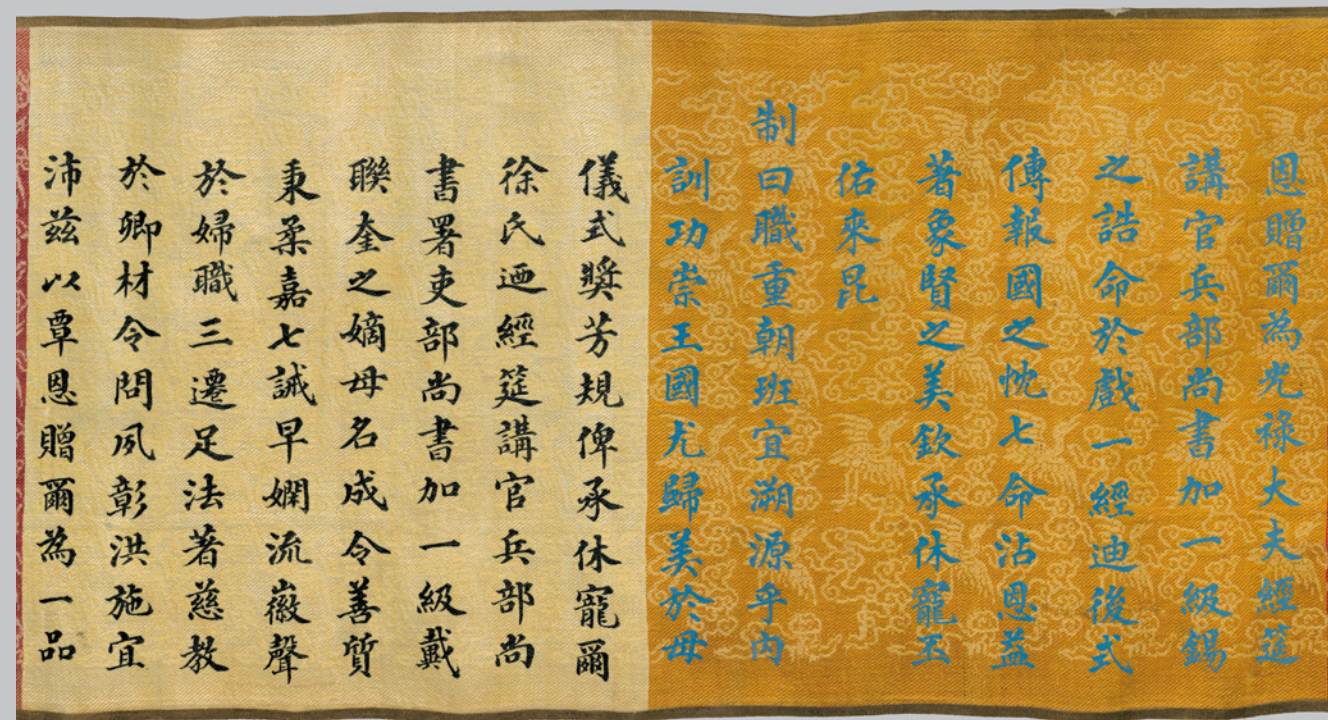 恩贈爾為光祿大夫經筵
講官兵部尚書加一級錫
之誥命於戲一經迪後式
傳報國之忱七命沾恩益
著象賢之美欽承休寵玉
佑來昆
制曰職重朝班宜溯源乎内
訓功崇王國尤歸美於母
儀式奬芳規俾承休寵爾
徐氏迺經筵講官兵部尚
書署吏部尚書加一級戴
聯奎之嫡母名成令善質
秉柔嘉七誡早嫻流徽聲
於婦職三遷足法著慈教
於卿材令問夙彰洪施宜
沛兹以覃恩贈爾為一品